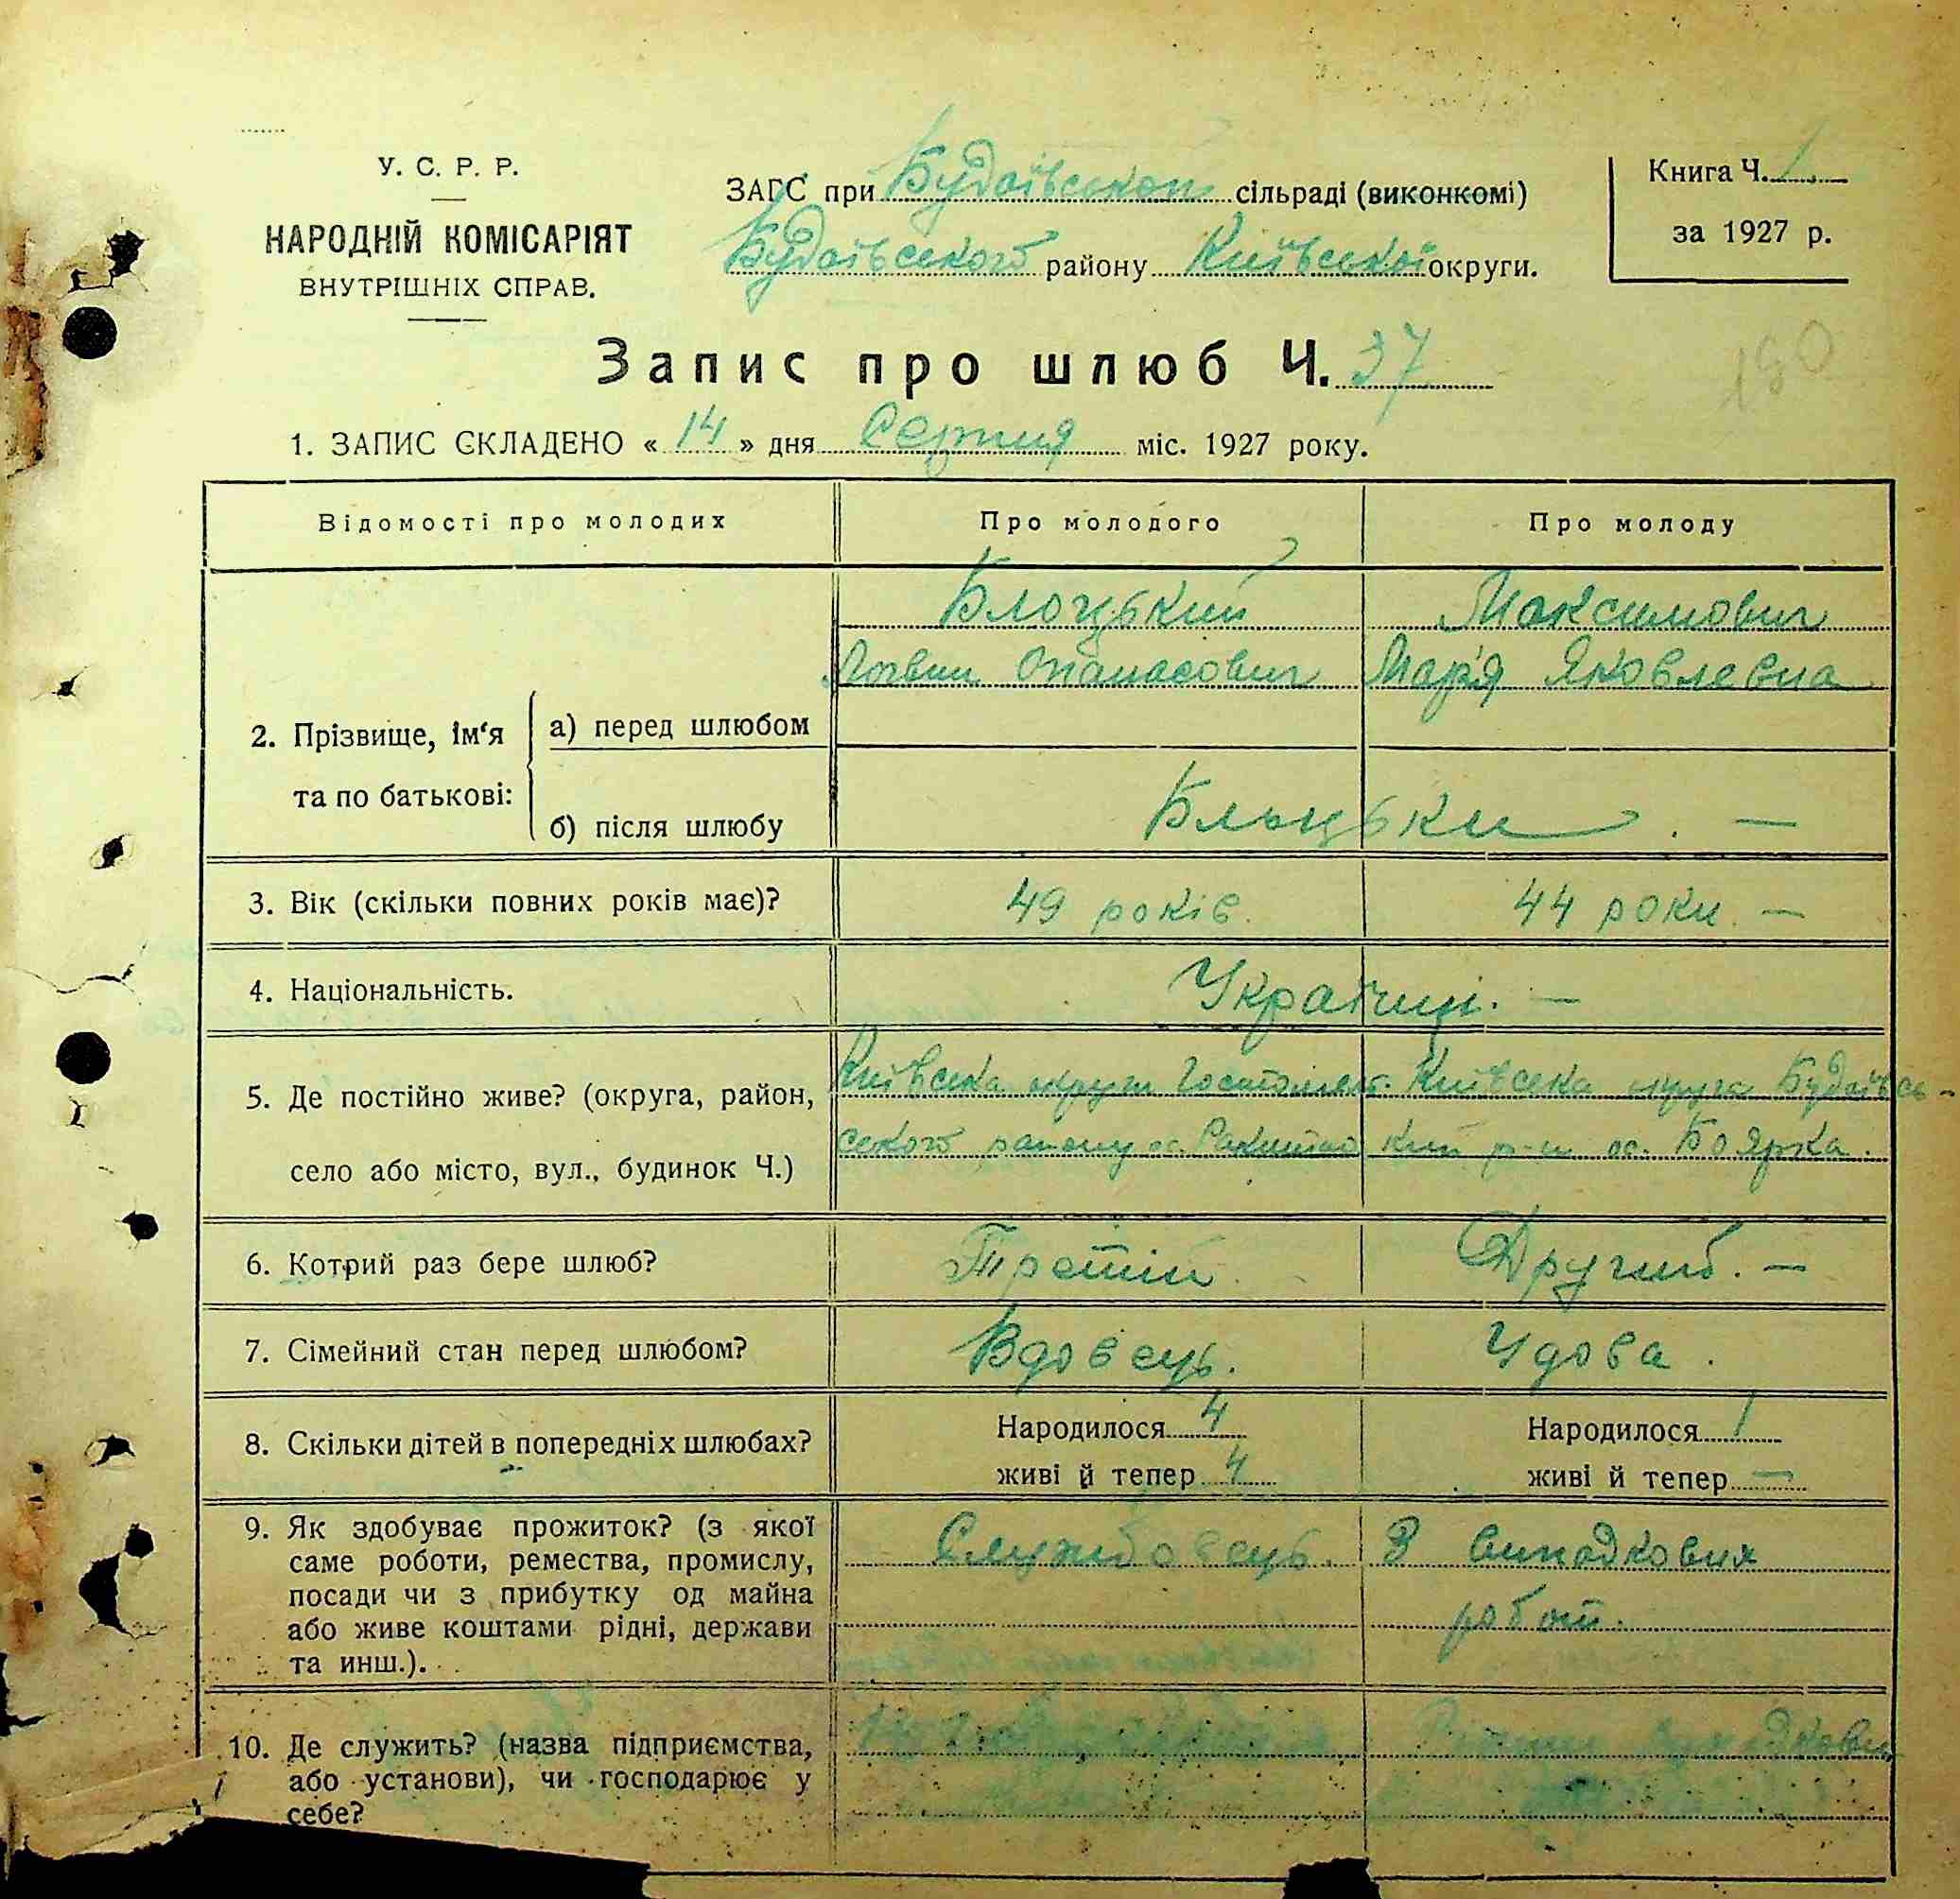 У. С. Р. Р.
НАРОДНІЙ КОМІСАРІЯТ
ВНУТРІШНІХ СПРАВ.
ЗАГС при Будаївській сільраді (виконкомі)
Будаївського району Київської округи.
Книга Ч. 1
за 1927 р.
Запис про шлюб Ч. 37
190
1. ЗАПИС СКЛАДЕНО « 14 » дня Серпня міс. 1927 року.
Відомості про молодих Про молодого Про молоду
Блоцький Максимович
Логвин Опанасович Мар'я Яковлевна
2. Прізвище, ім'я та по батькові:
а) перед шлюбом
б) після шлюбу
3. Вік (скільки повних років має)? 49 років. 44 роки. —
4. Національність. Українці. —
5. Де постійно живе? (округа, район, Київська округи Гостомель- Київська округа Будаївсь-
село або місто, вул., будинок Ч.) ського району ос. кий р-н ос. Боярка.
6. Котрий раз бере шлюб? Третій. Другий. —
7. Сімейний стан перед шлюбом? Вдовець. Удова.
8. Скільки дітей в попередніх шлюбах? Народилося 4 Народилося 1
живі й тепер 4 живі й тепер —
9. Як здобуває прожиток? (з якої Службовець. З випадкових
саме роботи, ремества, промислу, робот.
посади чи з прибутку од майна
або живе коштами рідні, держави
та инш.).
10. Де служить? (назва підприємства,
або установи), чи господарює у
себе?